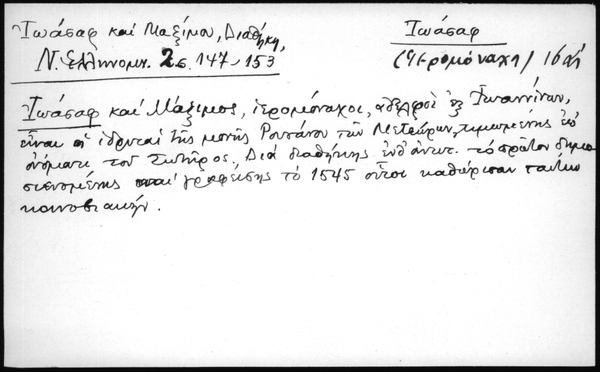 Ἰωάσαφ καὶ Μαξίμου, Διαθήκη,
Ν. Ἑλληνομν. 2 σ. 147-153
Ἰωάσαφ
(Ἱερομόναχη) 16
Ἰωάσαφ καὶ Μάξιμος, ἱερομόναχοι, ἀδελφοὶ ἐξ Ἰωαννίνων,
εἶναι οἱ ἱδρυταὶ τῆς μονῆς Ρουσάνου τῶν Μετεώρων, τιμωμένης ἐπ'
ὀνόματι τοῦ Σωτῆρος. Διὰ διαθήκης ἐνθάντ. τὸ πρῶτον δημο
σιευομένης καὶ γραφείσης τὸ 1545 οὗτοι καθώρισαν ταύτην
κοινοβιακήν.